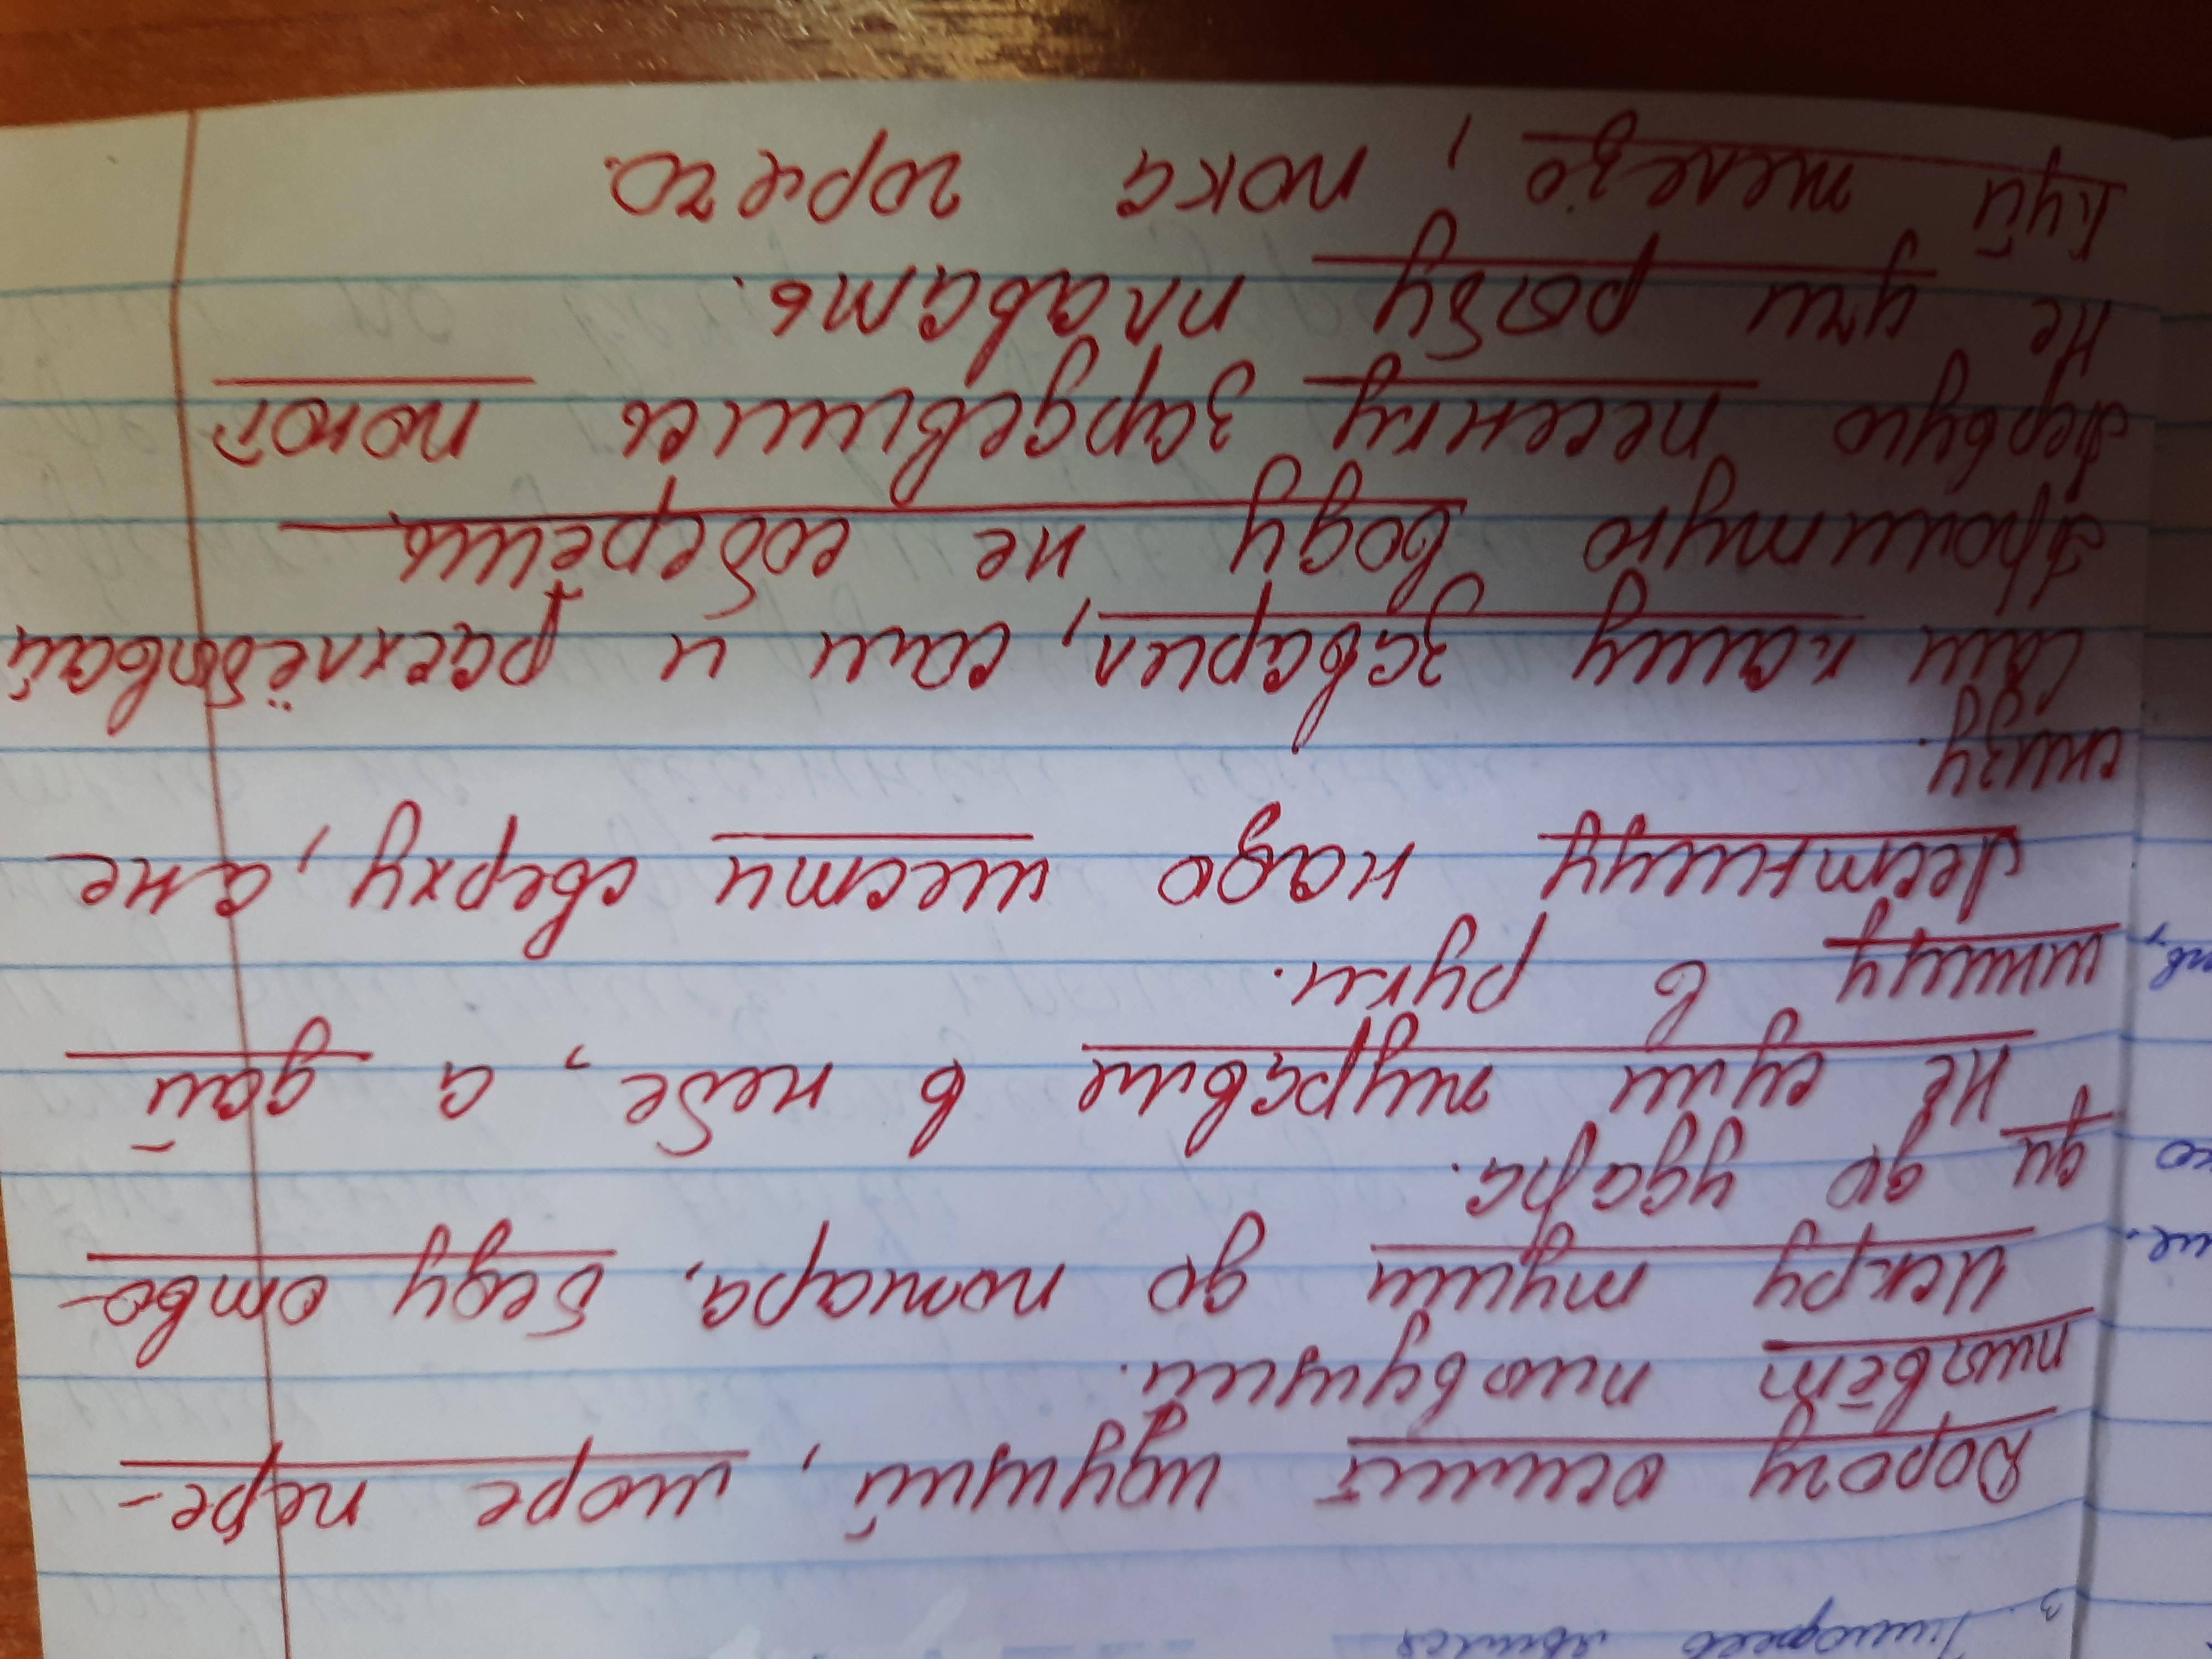 3. Тимофеев явился
Дорогу осилит идущий, море пере-
плывёт плывущий.
Искру туши до пожара, беду отво-
ди до удара.
Не сули журавля в небе, а дай
синицу в руки.
Лестницу надо мести сверху, а не
снизу.
Сам кашу заварил, сам и расхлёбывай
Пролитую воду не соберёшь
Первую песенку зардевшись поют
Не учи рыбу плавать.
Куй железо, пока горячо.